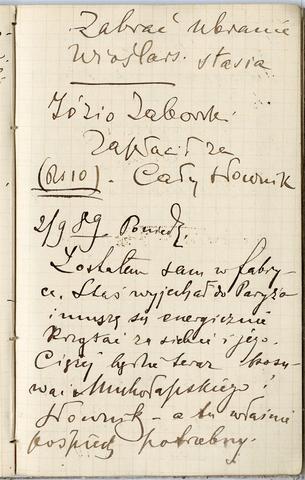 Zabrać ubranie
Wioślars. Stasia
Józio Zaborski
Zapłacić za
(Rs 10). Cały słownik
2/9 89 Poniedz.
Zostałem sam w fabry-
ce. Staś wyjechał do Paryża
i muszę się energicznie
krzątać za siebie i jego.
Ciężej będzie teraz
słownik a tu właśnie
pośpiech potrzebny.